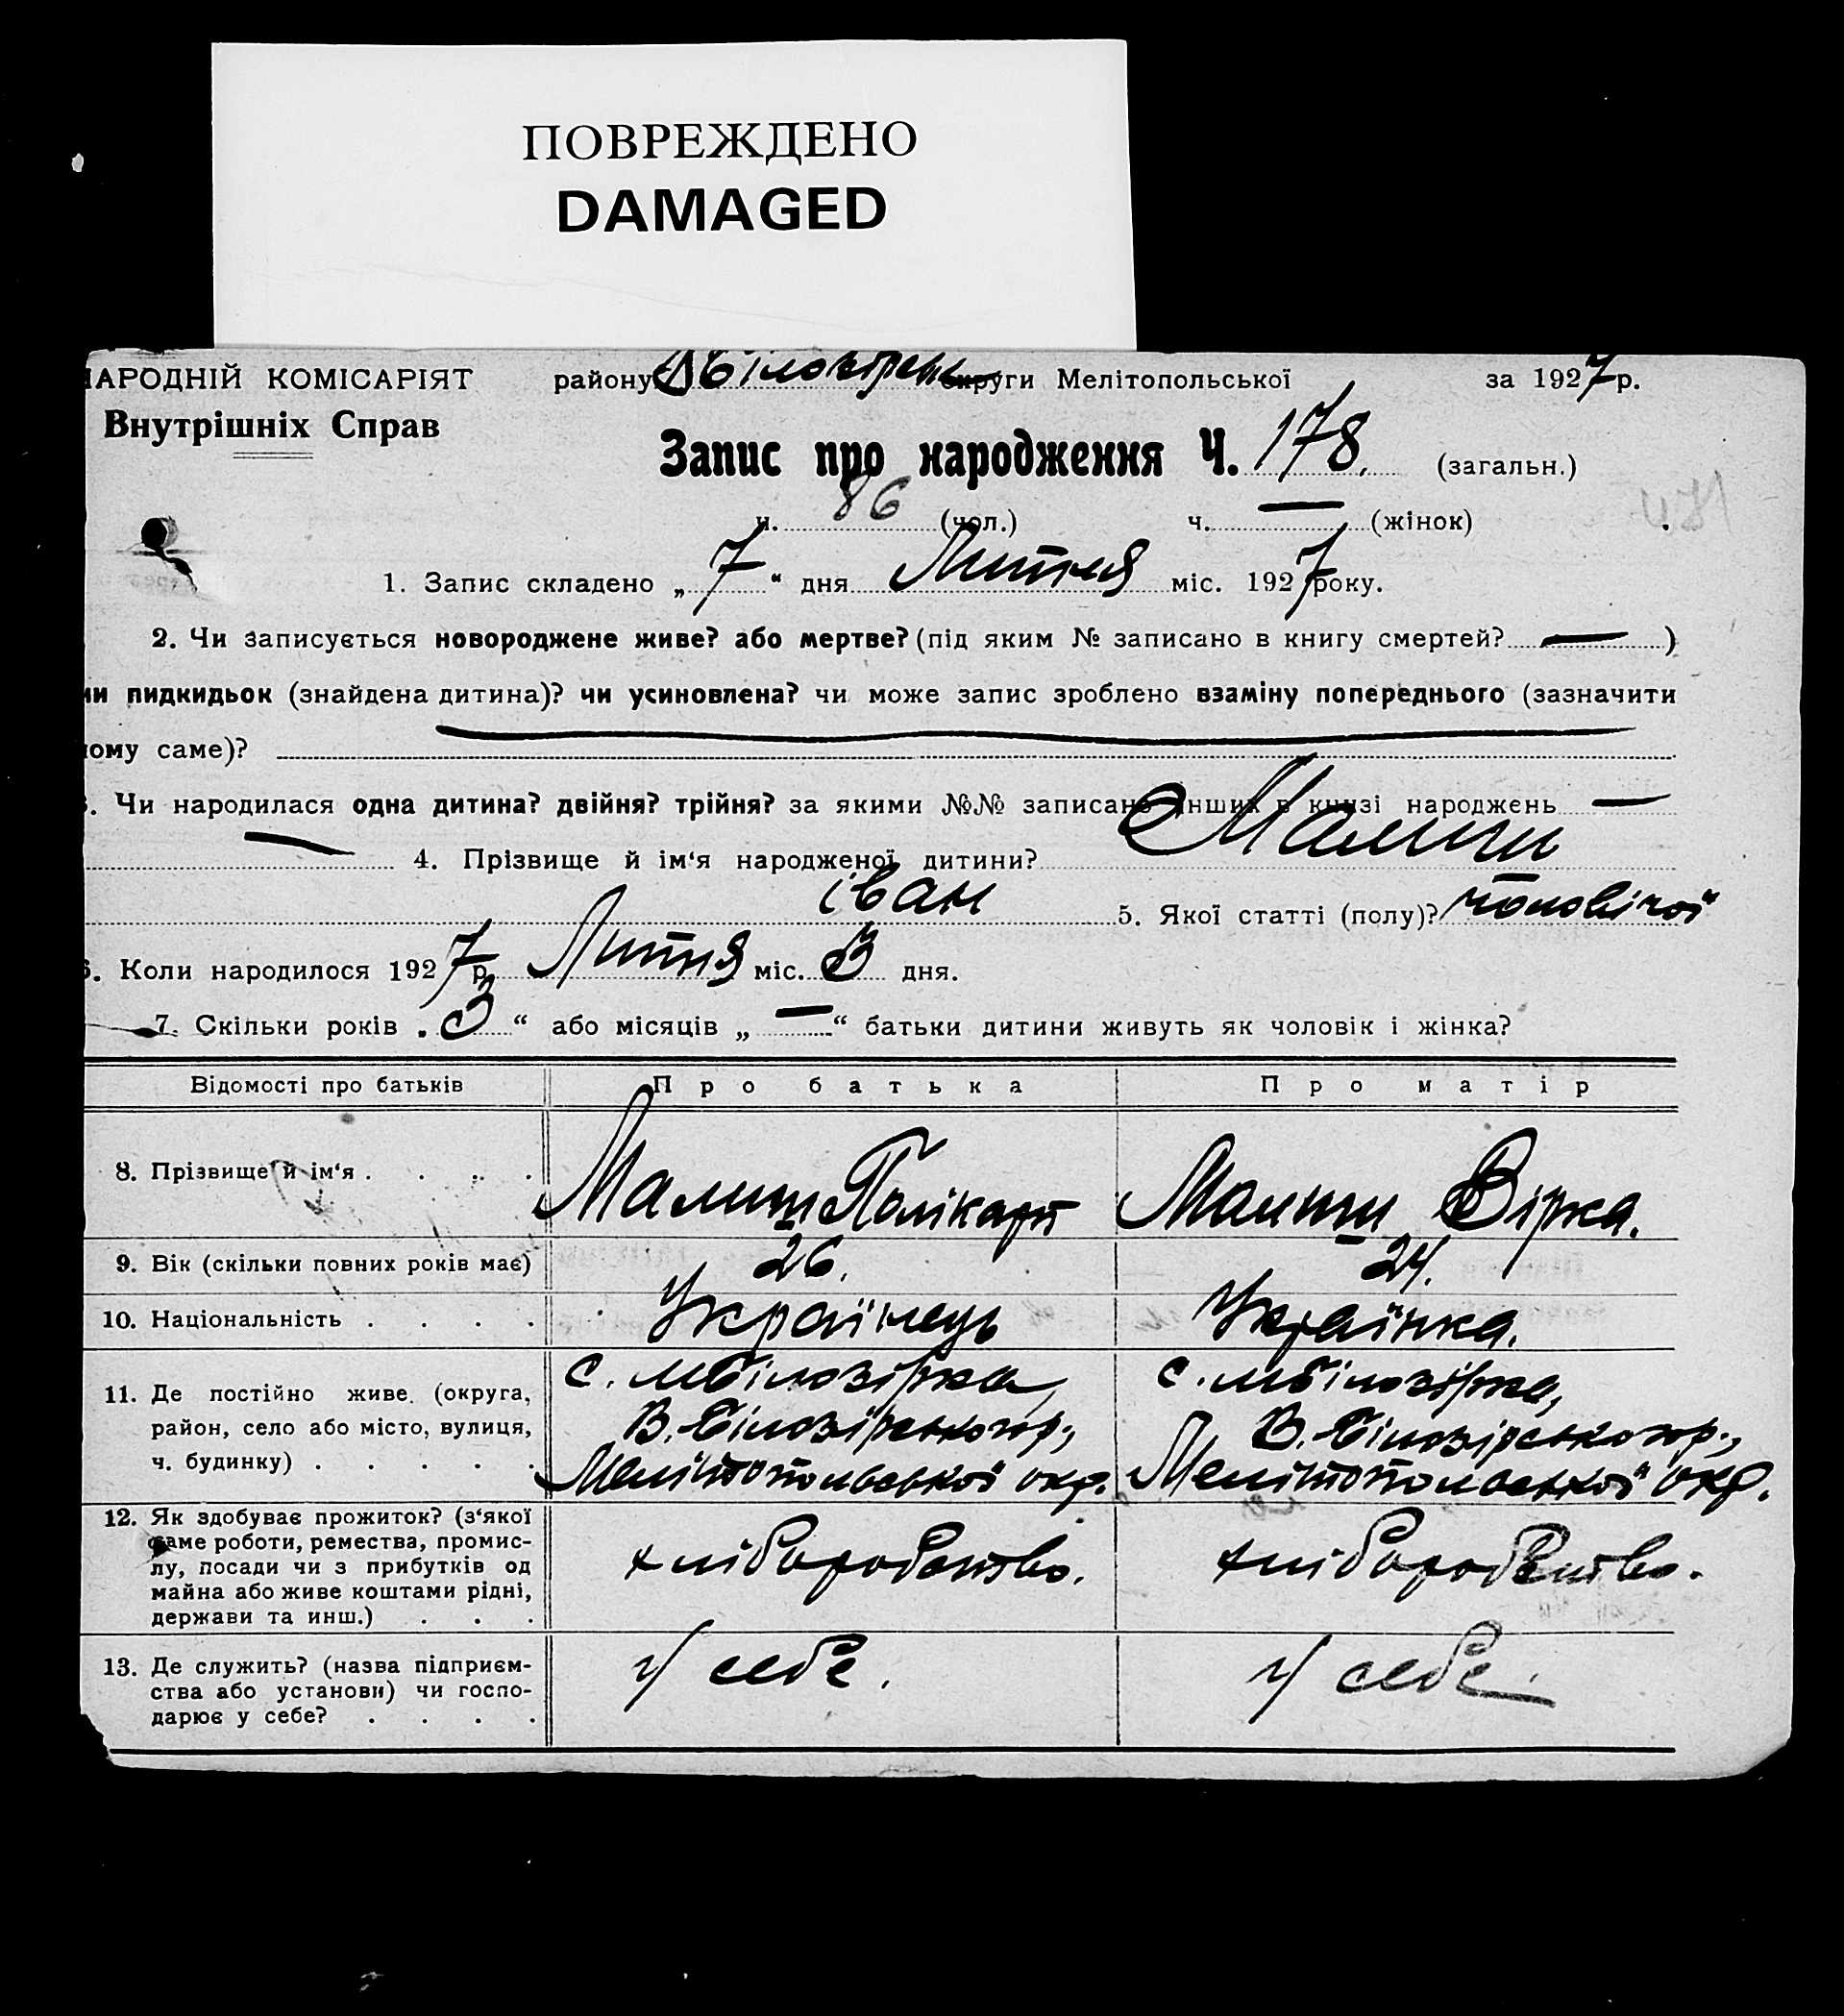 ПОВРЕЖДЕНО
DAMAGED
НАРОДНІЙ КОМІСАРІЯТ району округи Мелітопольської за 1927 р.
Внутрішніх Справ
Запис про народження Ч. 178. (загальн.)
ч. 86 (чол.) ч. — (жінок)
1. Запис складено „ 7 “ дня Липня міс. 1927 року.
2. Чи записується новороджене живе? або мертве? (під яким № записано в книгу смертей? — )
чи пидкидьок (знайдена дитина)? чи усиновлена? чи може запис зроблено взаміну попереднього (зазначити
чому саме)?
3. Чи народилася одна дитина? двійня? трійня? за якими №№ записано інших в книзі народжень —
— 4. Прізвище й ім‘я народженої дитини? Малиш
іван 5. Якої статті (полу)? чоловічої
6. Коли народилося 1927 р. Липня міс. 3 дня.
7. Скільки років „ 3 “ або місяців „ — “ батьки дитини живуть як чоловік і жінка?
Відомості про батьків Про батька Про матір
8. Прізвище й ім‘я . . . . Малиш Полікарп Малиш Вірка.
9. Вік (скільки повних років має) 26. 24.
10. Національність . . . . Українець Українка.
11. Де постійно живе (округа, с. мБілозірка, с. мБілозірка,
район, село або місто, вулиця, В. Білозірського р., В. Білозірського р.,
ч. будинку) . . . . . Мелітопольської окр. Мелітопольської окр.
12. Як здобуває прожиток? (з‘якої
саме роботи, ремества, промис-
лу, посади чи з прибутків од хліборобство. хліборобство.
майна або живе коштами рідні,
держави та инш.) . . .
13. Де служить? (назва підприєм- у себе. у себе.
ства або установи) чи госпо-
дарює у себе? . . . .